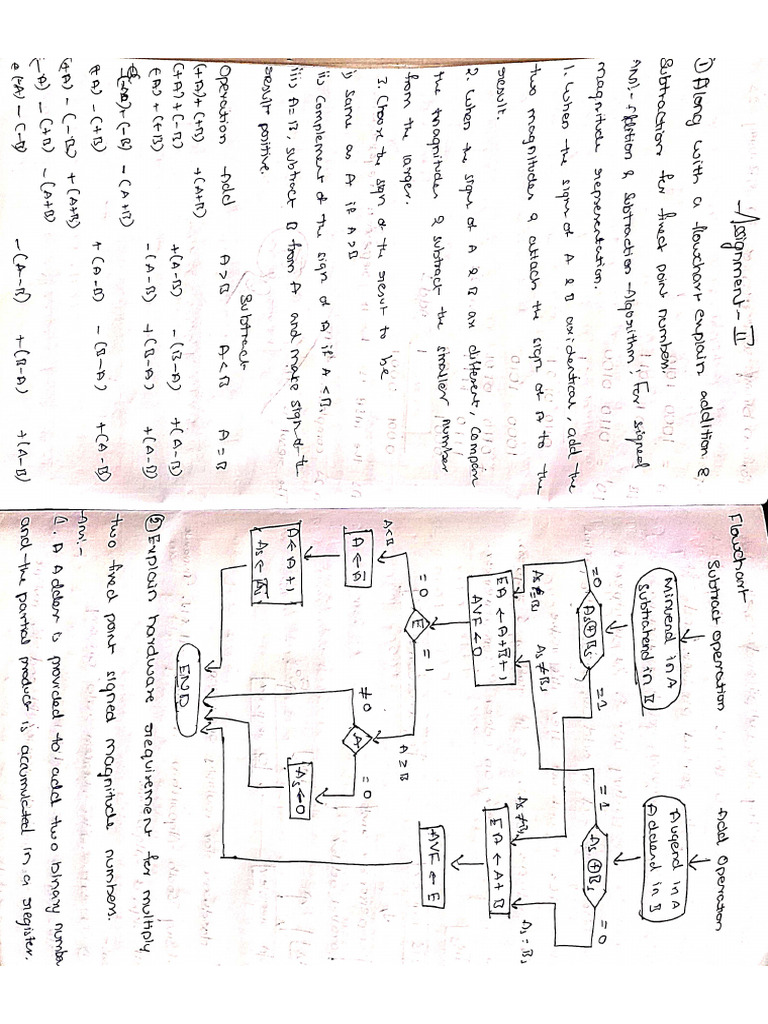 Assignment-II
① Along with a flowchart explain addition &
subtraction for fixed point numbers.
Ans:- Addition & Subtraction Algorithm: For signed
magnitude representation.
1. When the signs of A & B are identical, add the
two magnitudes & attach the sign of A to the
result.
2. When the signs of A & B are different, compare
the magnitudes & subtract the smaller number
from the larger.
3. Choose the sign of the result to be
i) Same as A if A>B
ii) Complement of the sign of A if A<B.
iii) A=B, subtract B from A and make sign of the
result positive.
Subtract
Operation Add A>B A<B A=B
(+A)+(+B) +(A+B)
(+A)+(-B) +(A-B) -(B-A) +(A-B)
(-A)+(+B) -(A-B) +(B-A) +(A-B)
(-A)+(-B) -(A+B)
(+A)-(+B) +(A-B) -(B-A) +(A-B)
(+A)-(-B) +(A+B)
(-A)-(+B) -(A+B)
(-A)-(-B) -(A-B) +(B-A) +(A-B)
Flowchart
Subtract operation
Add operation
Minuend in A
Subtrahend in B
Augend in A
Addend in B
=0
As⊕Bs
=1
=1
As⊕Bs
=0
As=Bs
As≠Bs
As≠Bs
As=Bs
EA ← A+B̅+1
AVF ← 0
EA ← A+B
=0
E
=1
AVF ← E
A<B
A≥B
A ← A̅
≠0
A
=0
A ← A+1
As ← A̅s
As ← 0
END
② Explain hardware requirement for multiply
two fixed point signed magnitude numbers.
Ans:-
1. A Adder is provided to add two binary number
and the partial product is accumulated in a register.